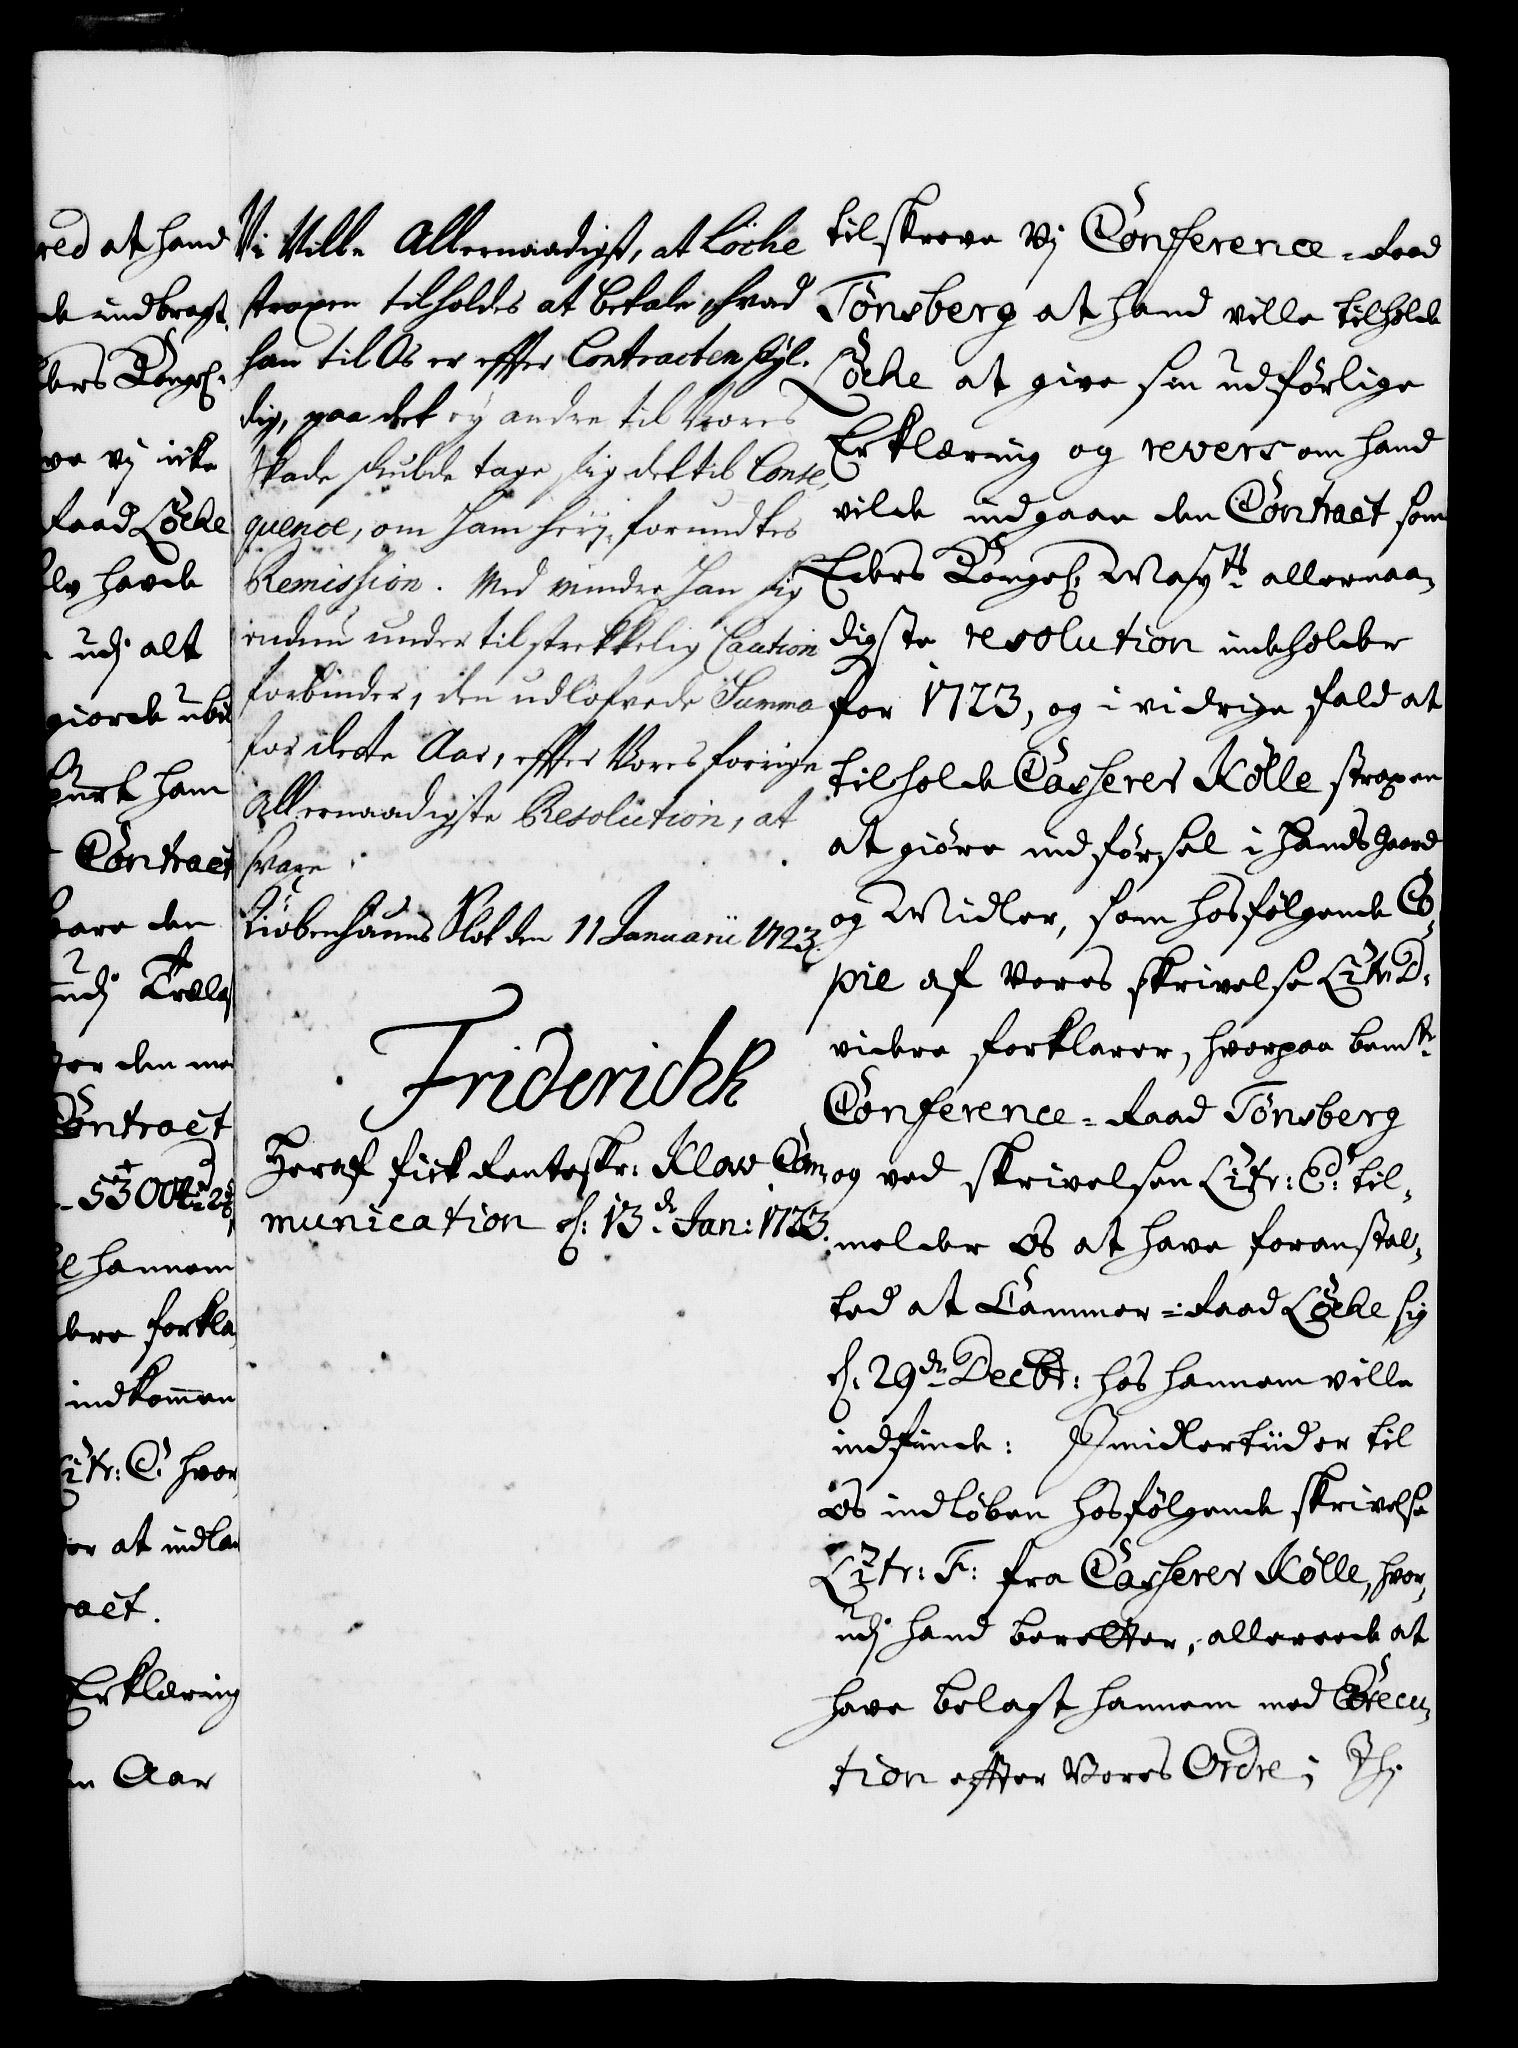 red at hand
de indbragt,
bers Kongel:
ve vj icke
Raad Löche
lv havde
udj alt
giorde ubil
purt ham
Contract
vare den
udj Træla
for den me
Contract
5300
hannem
dere forkla,
indkommen
Litr: C: hvor
er at indla
act.
Erklæring
Aar
Vi Ville Allernaadigst, at Löche
straxen tilholdes at betale, hvad
han til Os er efter Contracten skyl-
dig, paa det ey andre til Vores
skade skulde tage sig det til Conse,
quence, om ham herj forundtes
Remission. Med mindre han sig
endnu under tilstrekkelig Caution
forbinder, den udlofvede Summa
for dette Aar, efter Vores forrige
Allernaadigste Resolution, at
svare.
Kiöbenhauns Slot den 11 Januarii 1723.
Friderich R
Heraf fick Renteskr: Klow Com,
munication d: 13de Jan: 1723.
tilskreve vj Conference-Raad
Tönsberg at hand ville tilholde
Löche at give sin udförlige
Erklæring og revers om hand
vilde indgaae den Contract som
Eders Kongel: Mayts allernaa,
digste resolution indeholder
for 1723, og i vidrige fald at
tilholde Casserer Kölle straxen
at giöre indförsel i hands gaard
og Midler, som hosfölgende Co,
pie af Vores skrivelse Litr: D:
videre forklarer, hvorpaa bemte
Conference-Raad Tönsberg
og ved skrivelsen Litr: E: til,
melder os at have foranstal,
ted at Cammer-Raad Löche sig
d: 29de Decbr: hos hannem ville
indfinde: Imidlertiid er til
os indlöben hosfölgende skrivelse
Litr: F: fra Casserer Kölle, hvor,
udj hand beretter, allereede at
have belagt hannem med Execu,
tion efter Vores Ordre; Thj